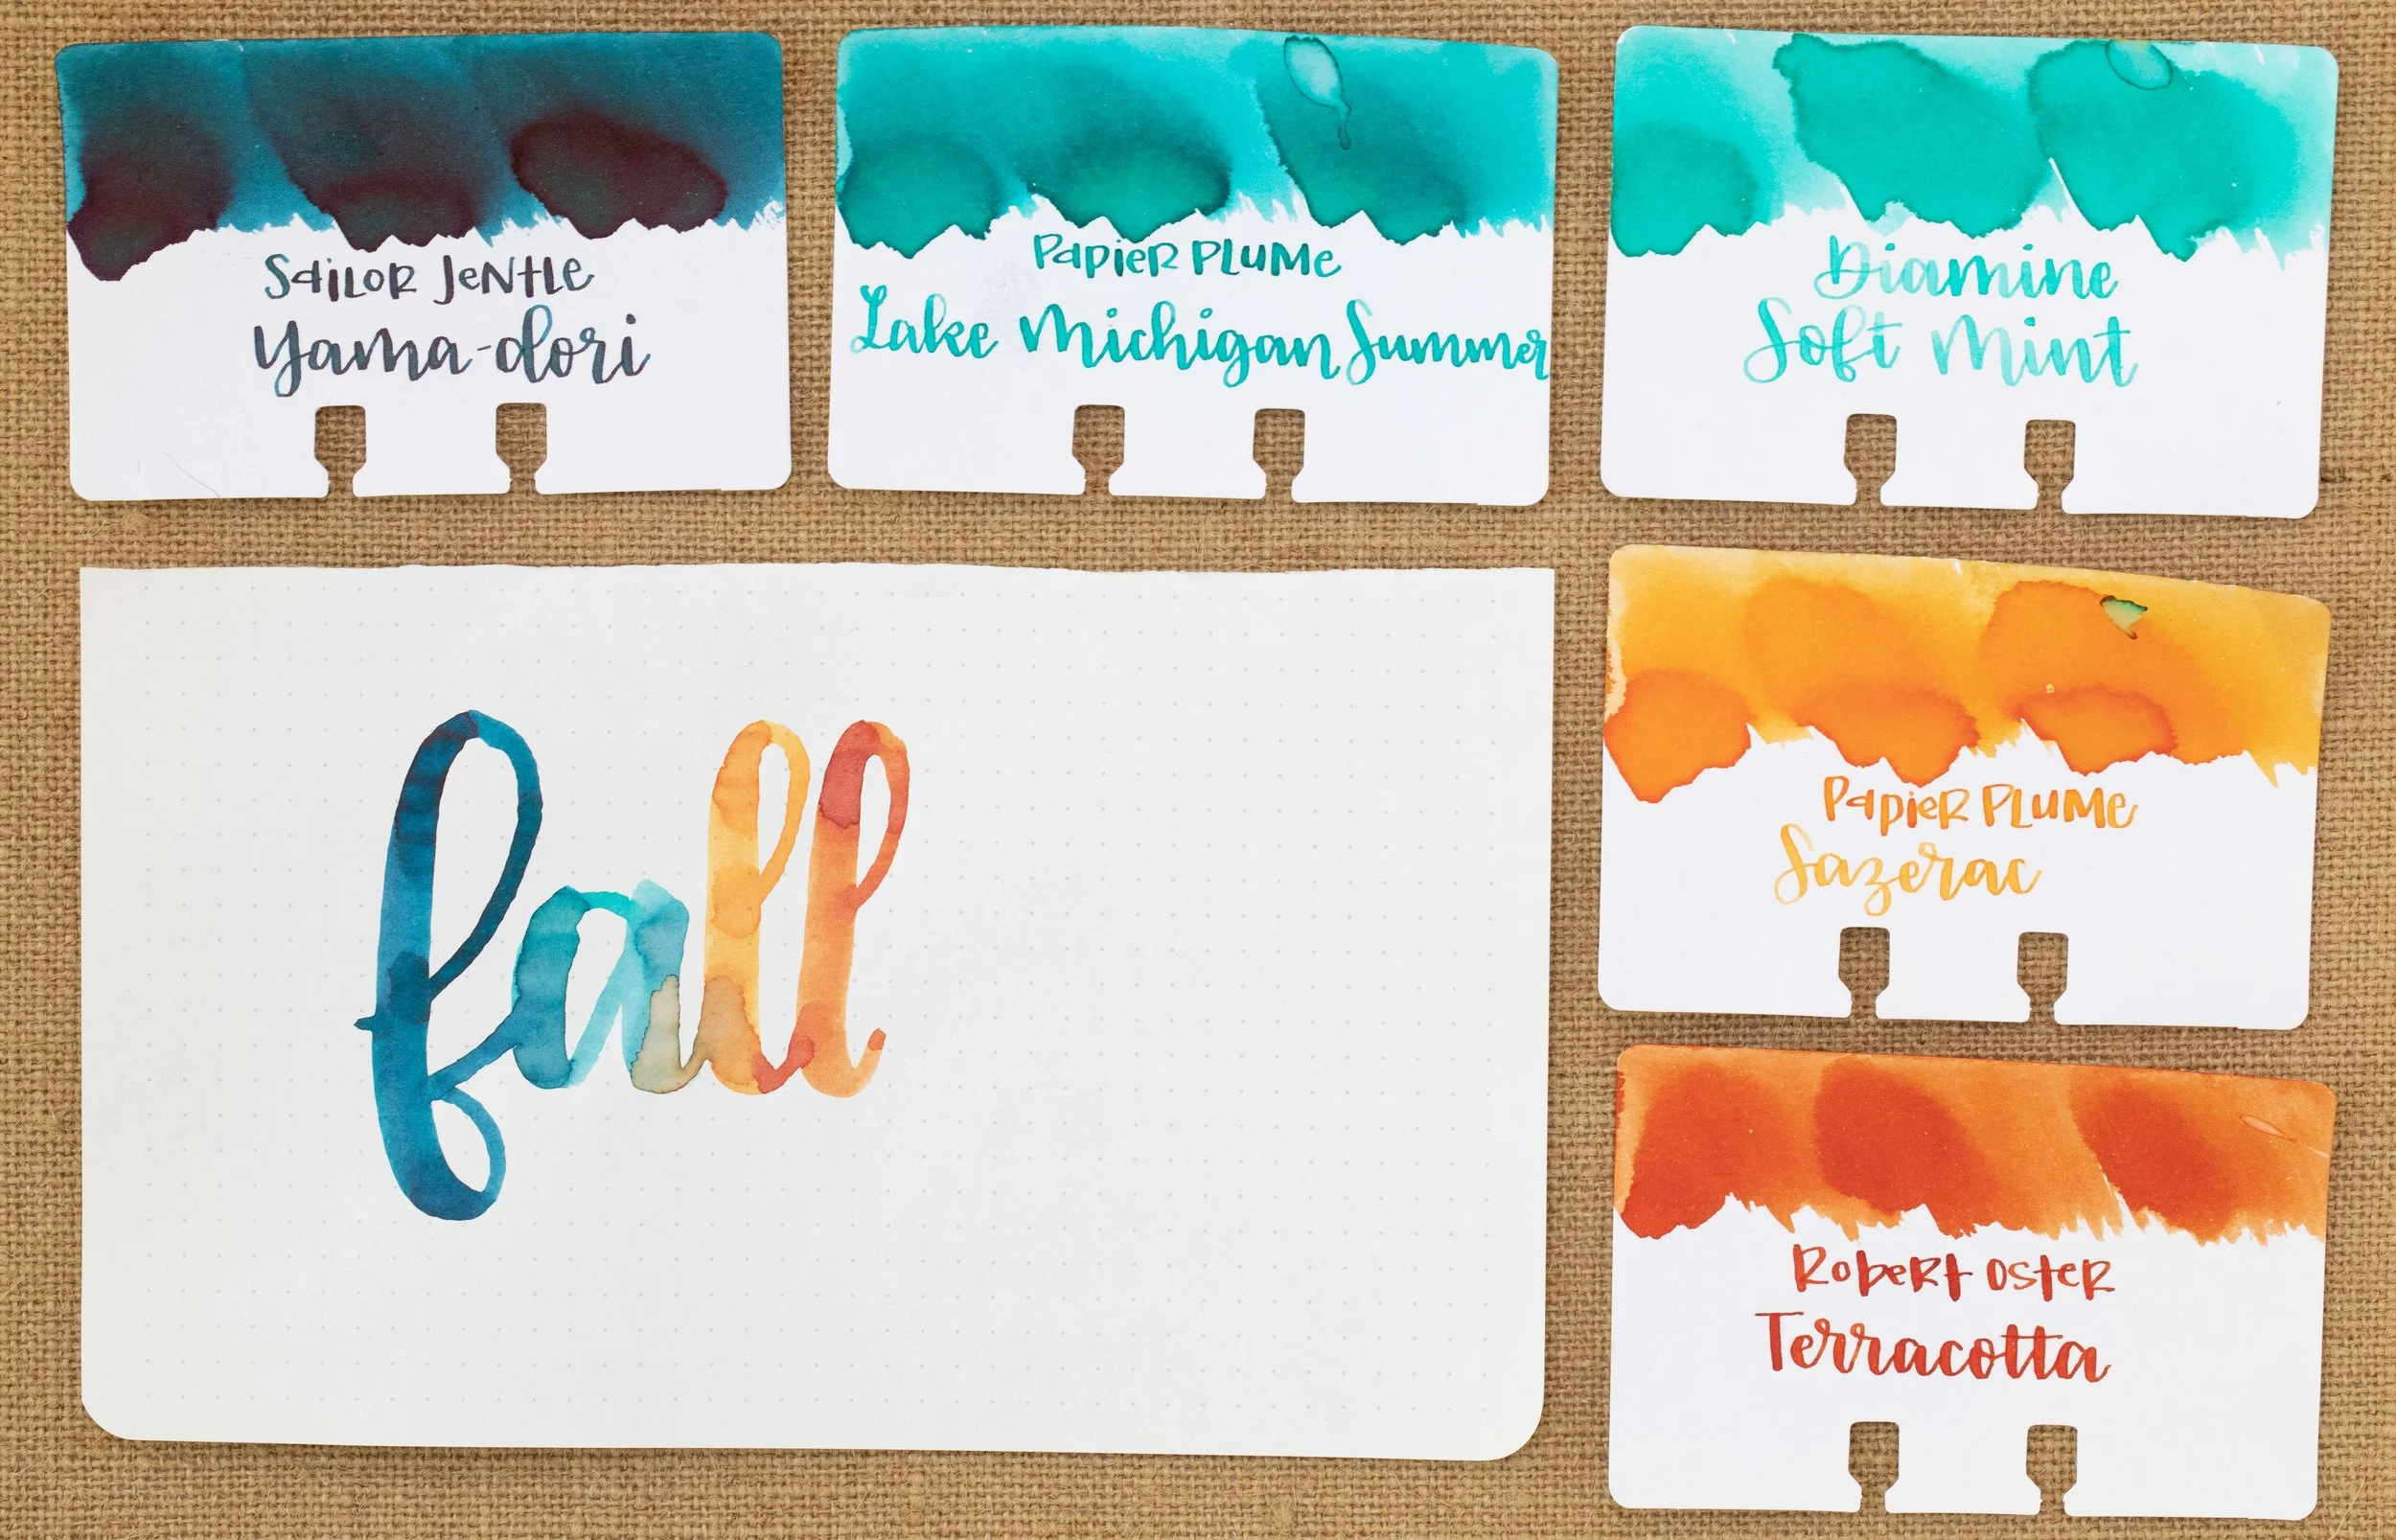 Sailor Jentle
Yama-dori
Papier Plume
Lake Michigan Summer
Diamine
Soft Mint
fall
Papier Plume
Sazerac
Robert Oster
Terracotta